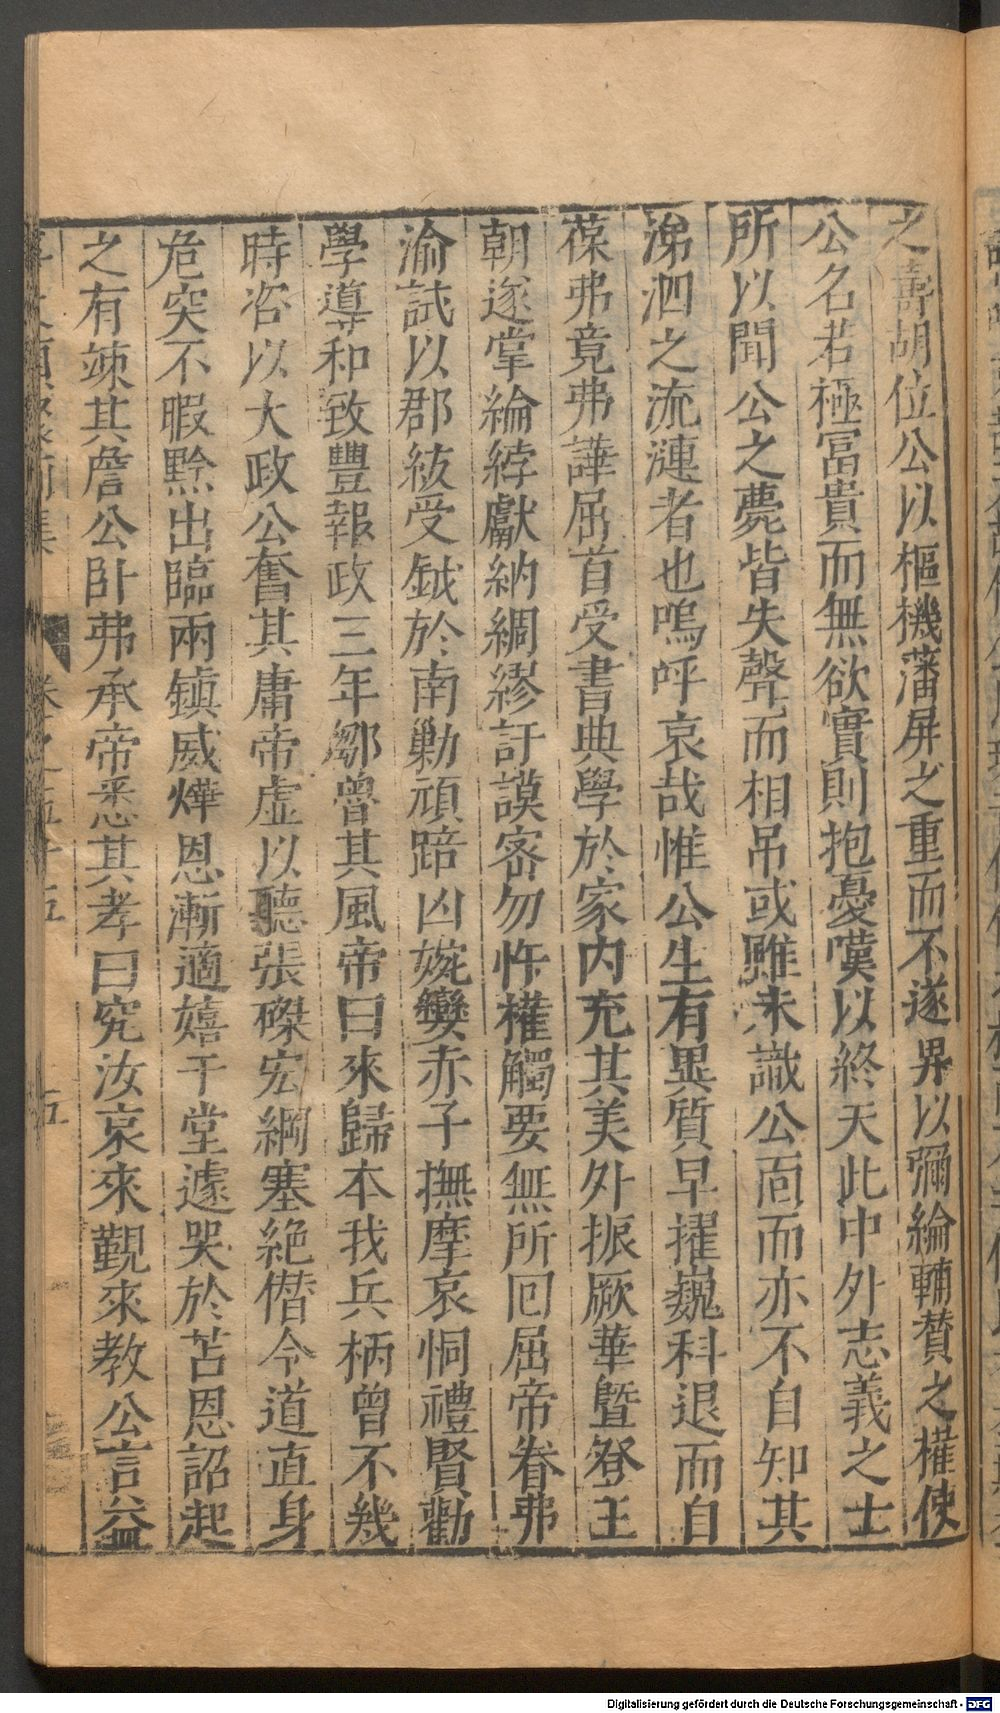 之壽胡位公以樞機藩屏之重而不遂畀以彌綸輔贊之權使
公名若極富貴而無欲實則抱憂嘆以終天此中外志義之士
所以聞公之薨皆失聲而相吊或雖未識公面而亦不自知其
涕泗之流漣者也嗚呼哀哉惟公生有異質早擢巍科退而自
葆弗竟弗譁屈首受書典學於家内充其美外振厥華暨登王
朝遂掌綸綍獻納綢繆訏謨密勿忤權觸要無所回屈帝眷弗
渝試以郡紱受鉞於南勦頑踣凶婉孌赤子撫摩哀恫禮賢勸
學導和致豐報政三年鄒魯其風帝曰來歸本我兵柄曾不幾
時咨以大政公奮其庸帝虚以聽張磔宏綱塞絶僭令道直身
危突不暇黔出臨兩鎮威燀恩漸適嬉于堂遽哭於苫恩詔起
之有竦其詹公卧弗承帝悉其孝曰究汝哀來覲來教公言益
卷之五十五
五
Digitalisierung gefördert durch die Deutsche Forschungsgemeinschaft - DFG